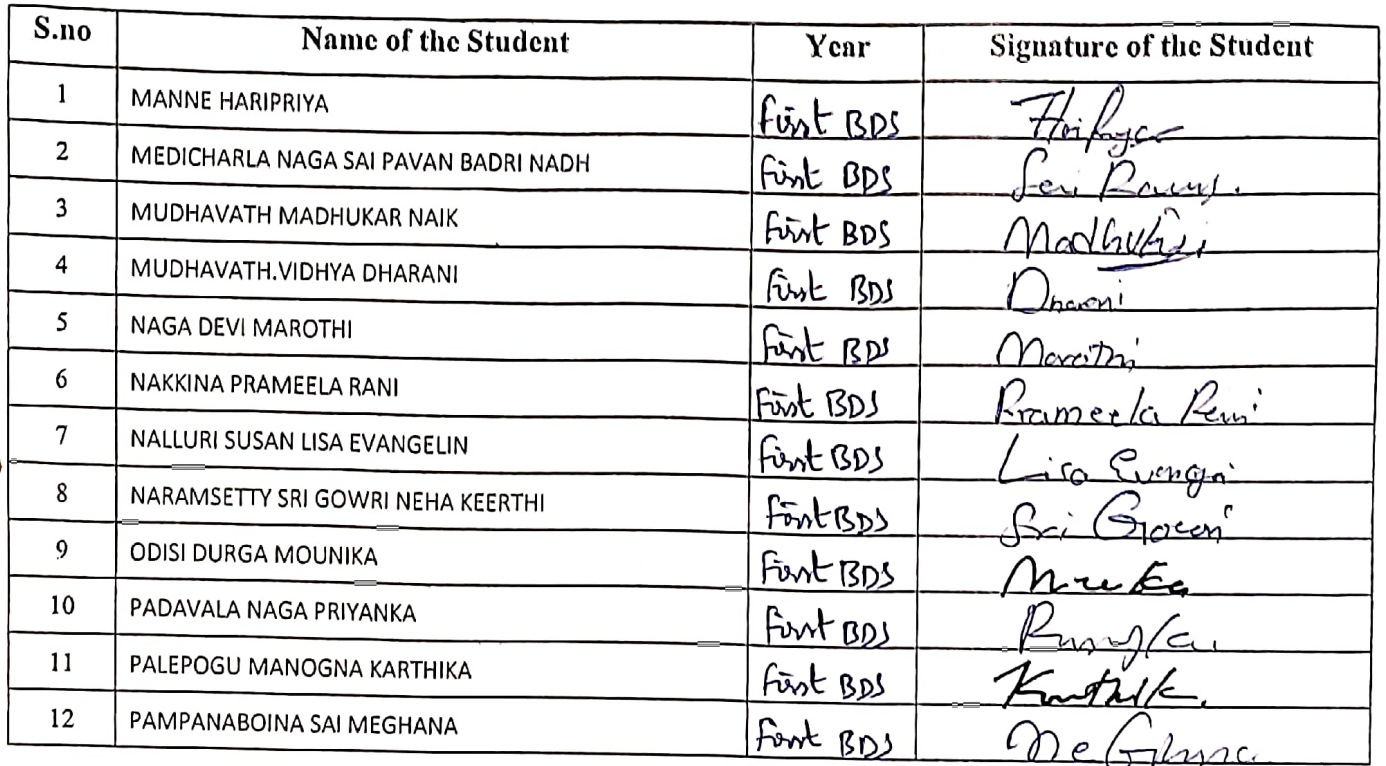 S.no Name of the Student Year Signature of the Student
1 MANNE HARIPRIYA First BDS
2 MEDICHARLA NAGA SAI PAVAN BADRI NADH First BDS
3 MUDHAVATH MADHUKAR NAIK First BDS
4 MUDHAVATH.VIDHYA DHARANI First BDS Dharani
5 NAGA DEVI MAROTHI First BDS Marothi
6 NAKKINA PRAMEELA RANI First BDS Prameela Rani
7 NALLURI SUSAN LISA EVANGELIN First BDS Lisa
8 NARAMSETTY SRI GOWRI NEHA KEERTHI First BDS Sri Gowri
9 ODISI DURGA MOUNIKA First BDS
10 PADAVALA NAGA PRIYANKA First BDS
11 PALEPOGU MANOGNA KARTHIKA First BDS
12 PAMPANABOINA SAI MEGHANA First BDS